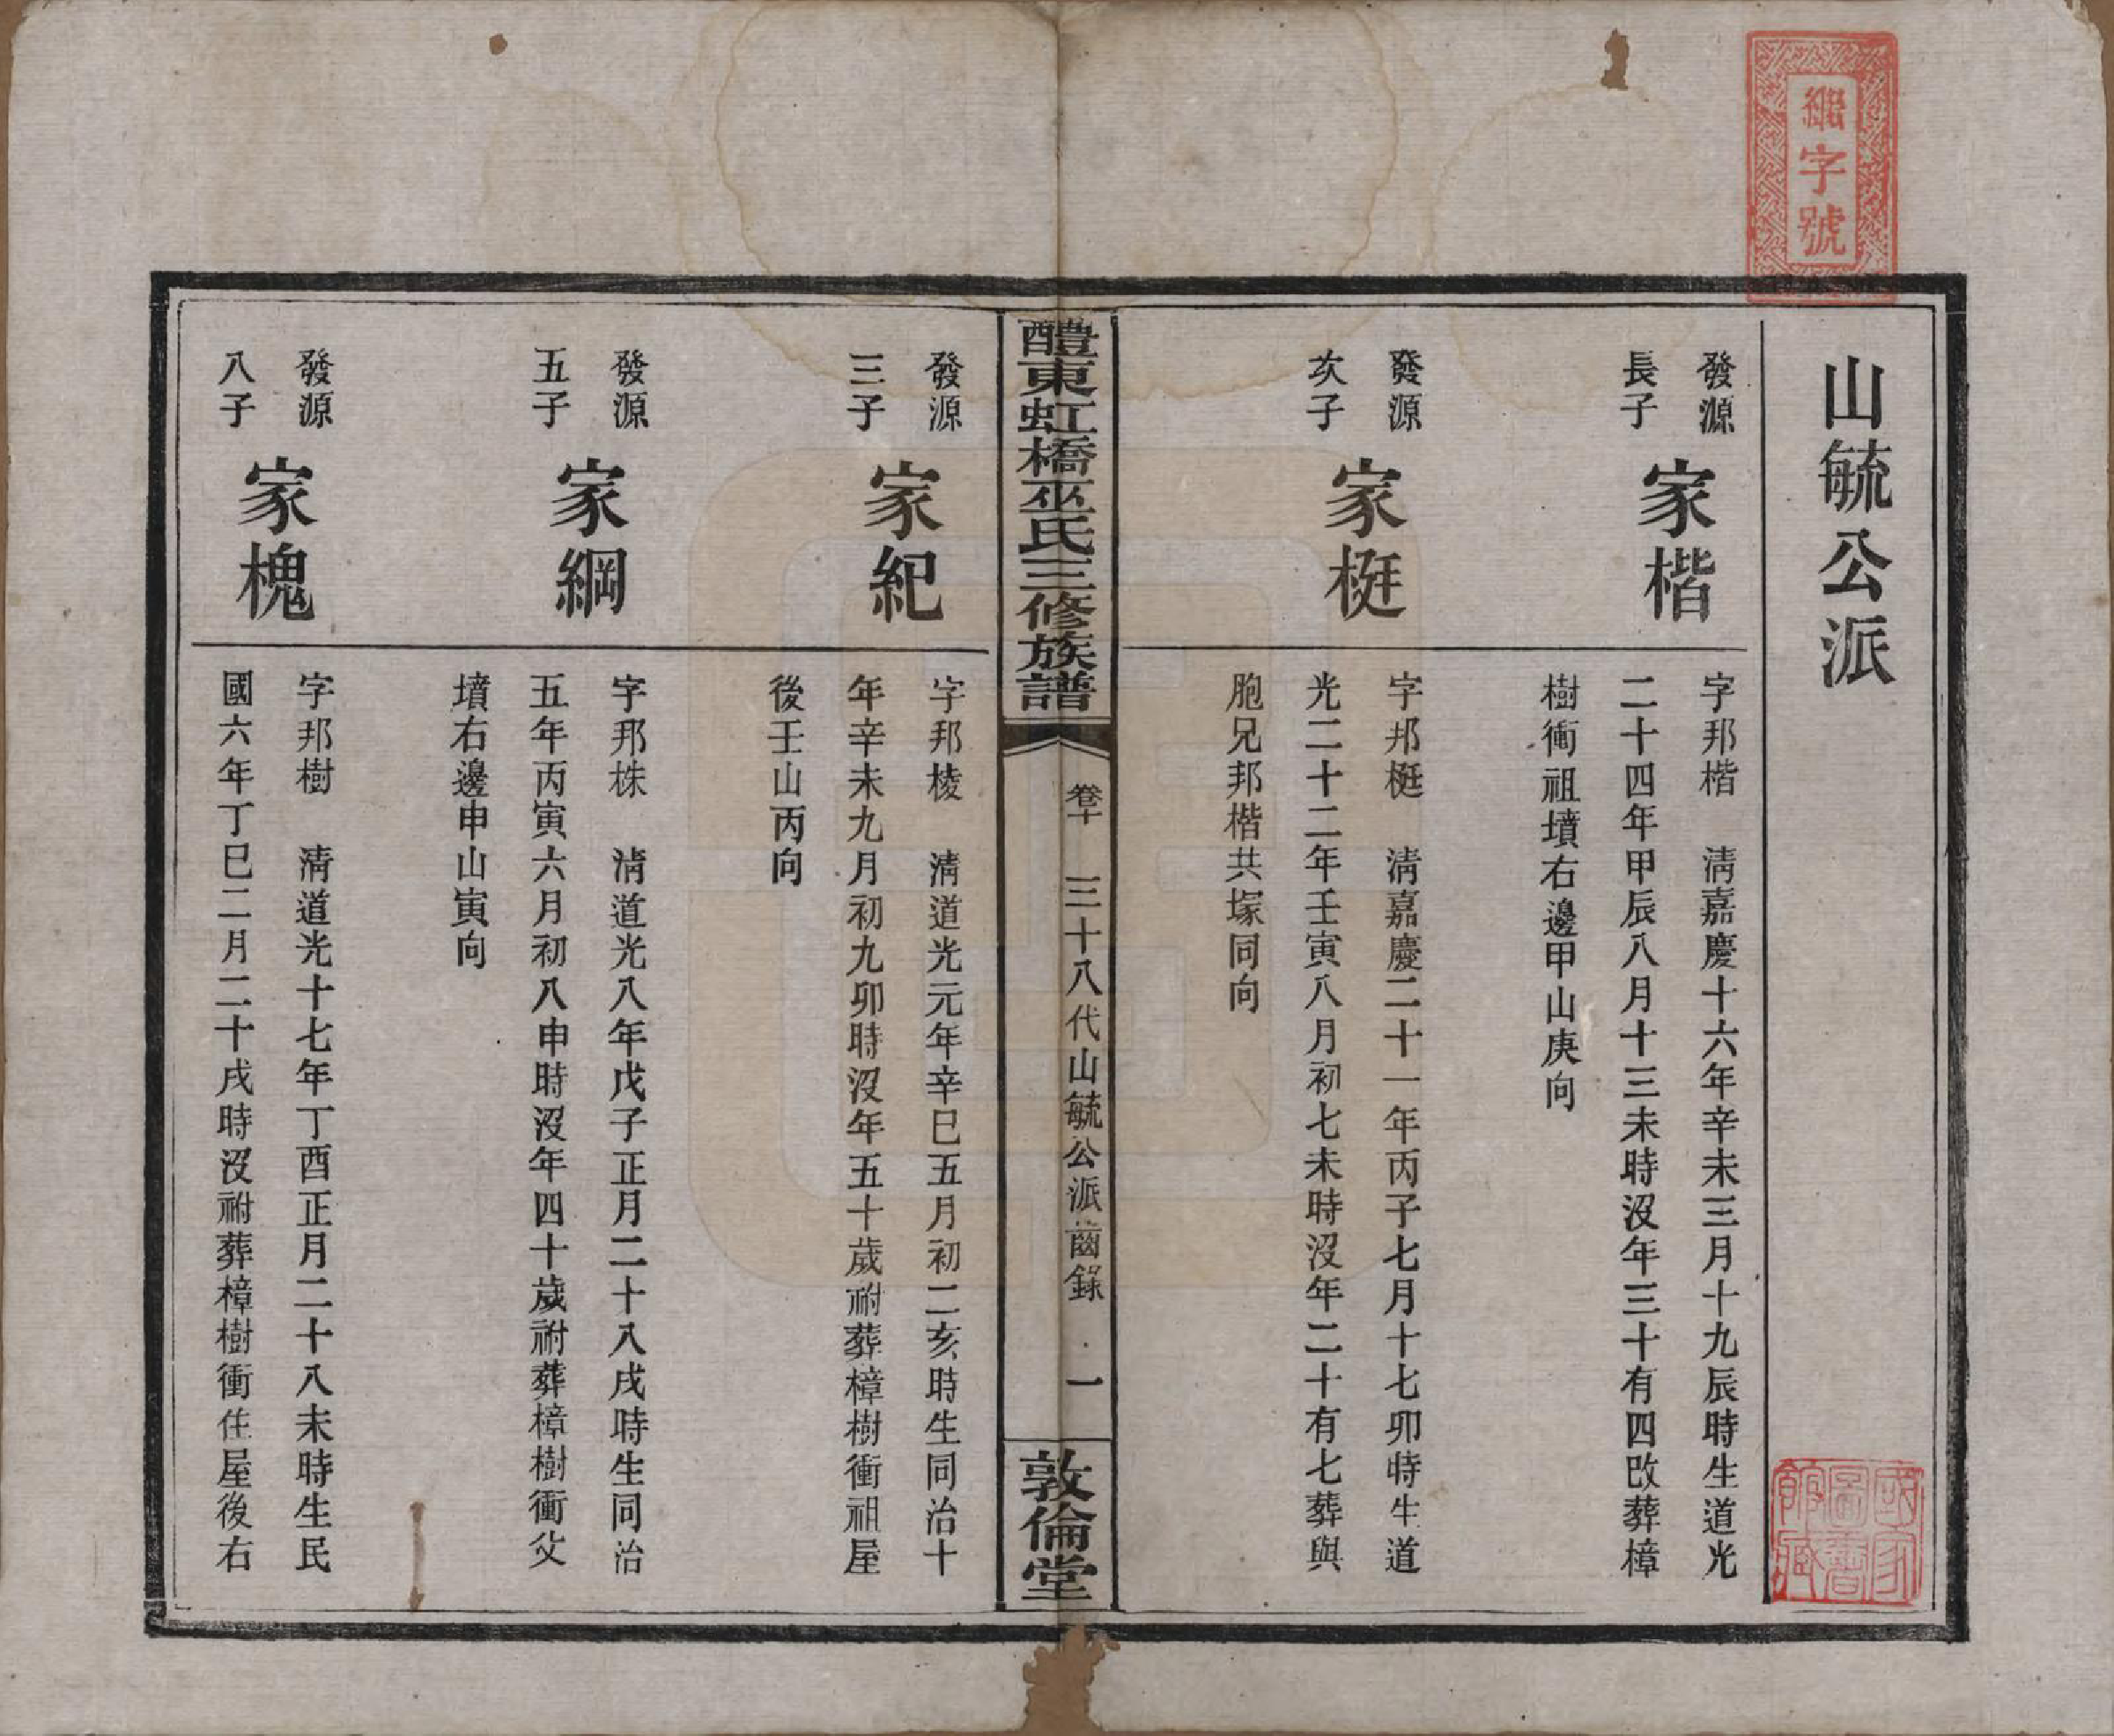 字號
山毓公派
發源
長子
家楷
字邦楷　清嘉慶十六年辛未三月十九辰時生道光
二十四年甲辰八月十三未時沒年三十有四改葬樟
樹衝祖墳右邊甲山庚向
發源
次子
家梃
字邦梃　清嘉慶二十一年丙子七月十七卯時生道
光二十二年壬寅八月初七未時沒年二十有七葬與
胞兄邦楷共塚同向
醴東虹橋巫氏三修族譜
卷十
三十八代山毓公派齒錄
一
敦倫堂
發源
三子
家紀
字邦棱　清道光元年辛巳五月初二亥時生同治十
年辛未九月初九卯時沒年五十歲祔葬樟樹衝祖屋
後壬山丙向
發源
五子
家綱
字邦株　清道光八年戊子正月二十八戌時生同治
五年丙寅六月初八申時沒年四十歲祔葬樟樹衝父
墳右邊申山寅向
發源
八子
家槐
字邦樹　清道光十七年丁酉正月二十八未時生民
國六年丁巳二月二十戌時沒祔葬樟樹衝住屋後右
國家
圖書
館藏